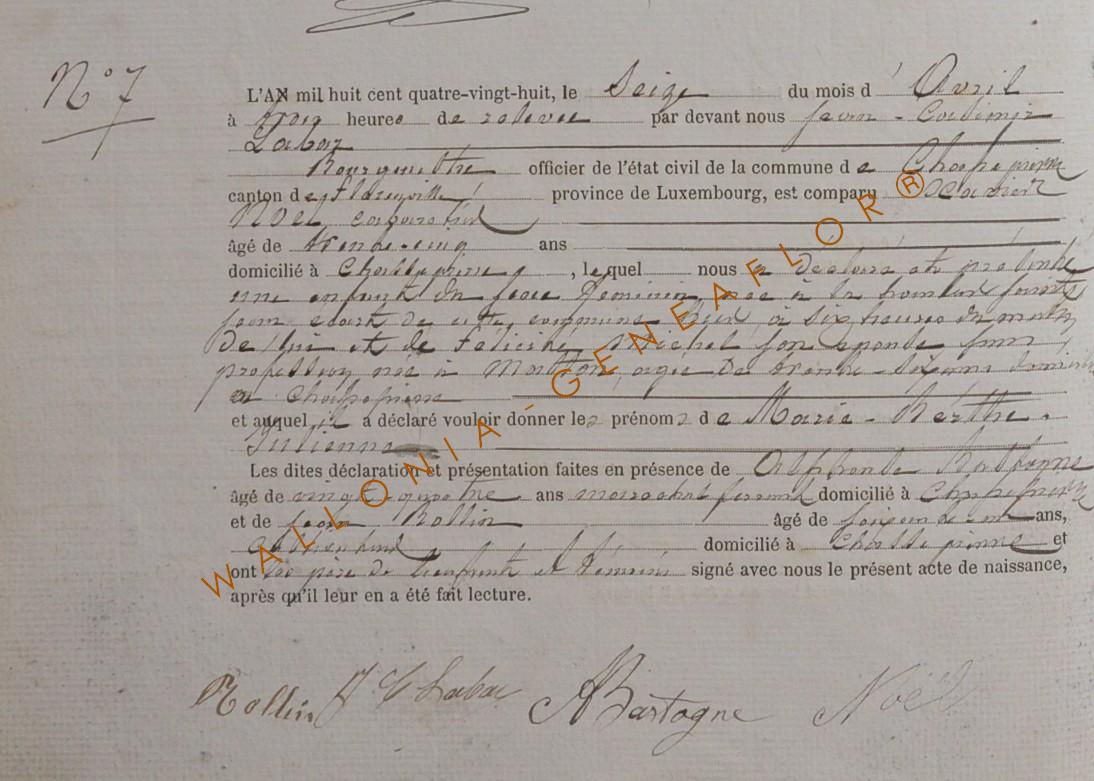 N° 7
L'AN mil huit cent quatre-vingt-huit, le Seize du mois d' Avril
à trois heures de relevée par devant nous Jean - Casimir
Labar
Bourgmestre officier de l'état civil de la commune de Chassepierre
canton de Florenville province de Luxembourg, est comparu Xavier
Noël
âgé de trente-cinq ans
domicilié à Chassepierre, lequel nous a déclaré et présenté
une enfant du sexe féminin, née à la
de cette commune hier à six heures du matin,
de lui et de Félicité Michel son épouse sans
profession née à âgée de trente - ans
à Chassepierre
et auquel il a déclaré vouloir donner les prénoms de Marie - Berthe -
Julienne
Les dites déclaration et présentation faites en présence de Bastogne
âgé de vingt-quatre ans maréchal ferrant domicilié à Chassepierre
et de Jean Rollin âgé de soixante-un ans,
domicilié à Chassepierre et
ont les père de l'enfant et témoins signé avec nous le présent acte de naissance,
après qu'il leur en a été fait lecture.
Rollin J C Labar ABastogne Noël
WALLONIA-GENEAFLOR®